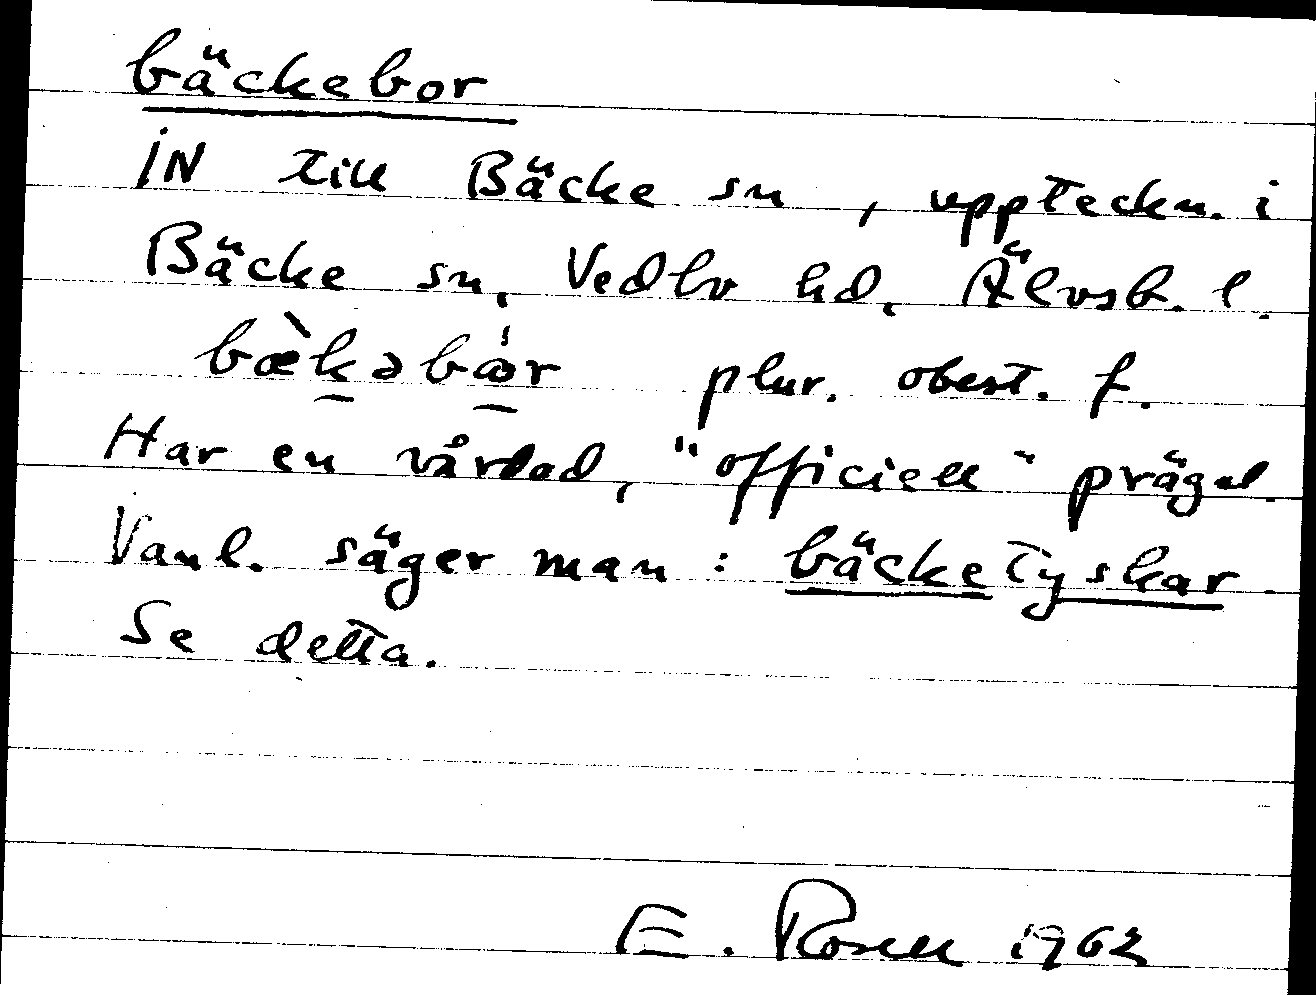 bäckebor
IN till Bäcke sn, uppteckn. i
Bäcke sn, Vedbo hd, Älvsb. l.
plur. obest. f.
Har en vårdad, "officiell" prägel.
Vanl. säger man: bäcketyskar.
Se detta.
E. Rosell 1962